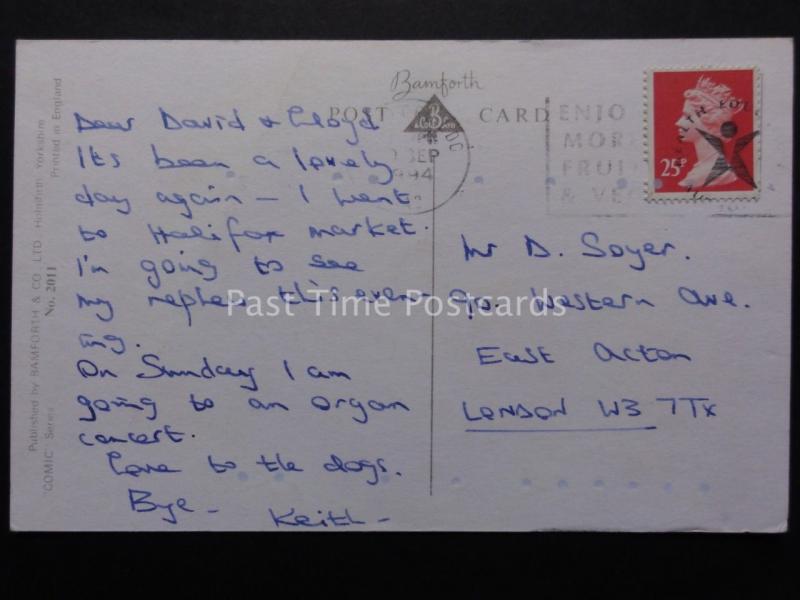 Bamforth
POST CARD
SEP
1994
ENJO
MOR
FRUI
& VE
25P
Dear David & Lloyd
It's been a lovely
day again - I went
to Halifax market.
I'm going to see
my nephew this even-
ing.
On Sunday I am
going to an organ
concert.
Love to the dogs.
Bye -
Keith -
Mr D. Soyer.
90. Western Ave.
East Acton
LONDON W3 7TX
Past Time Postcards
Published by BAMFORTH & CO LTD Holmfirth Yorkshire
'COMIC' Series No. 2011 Printed in England